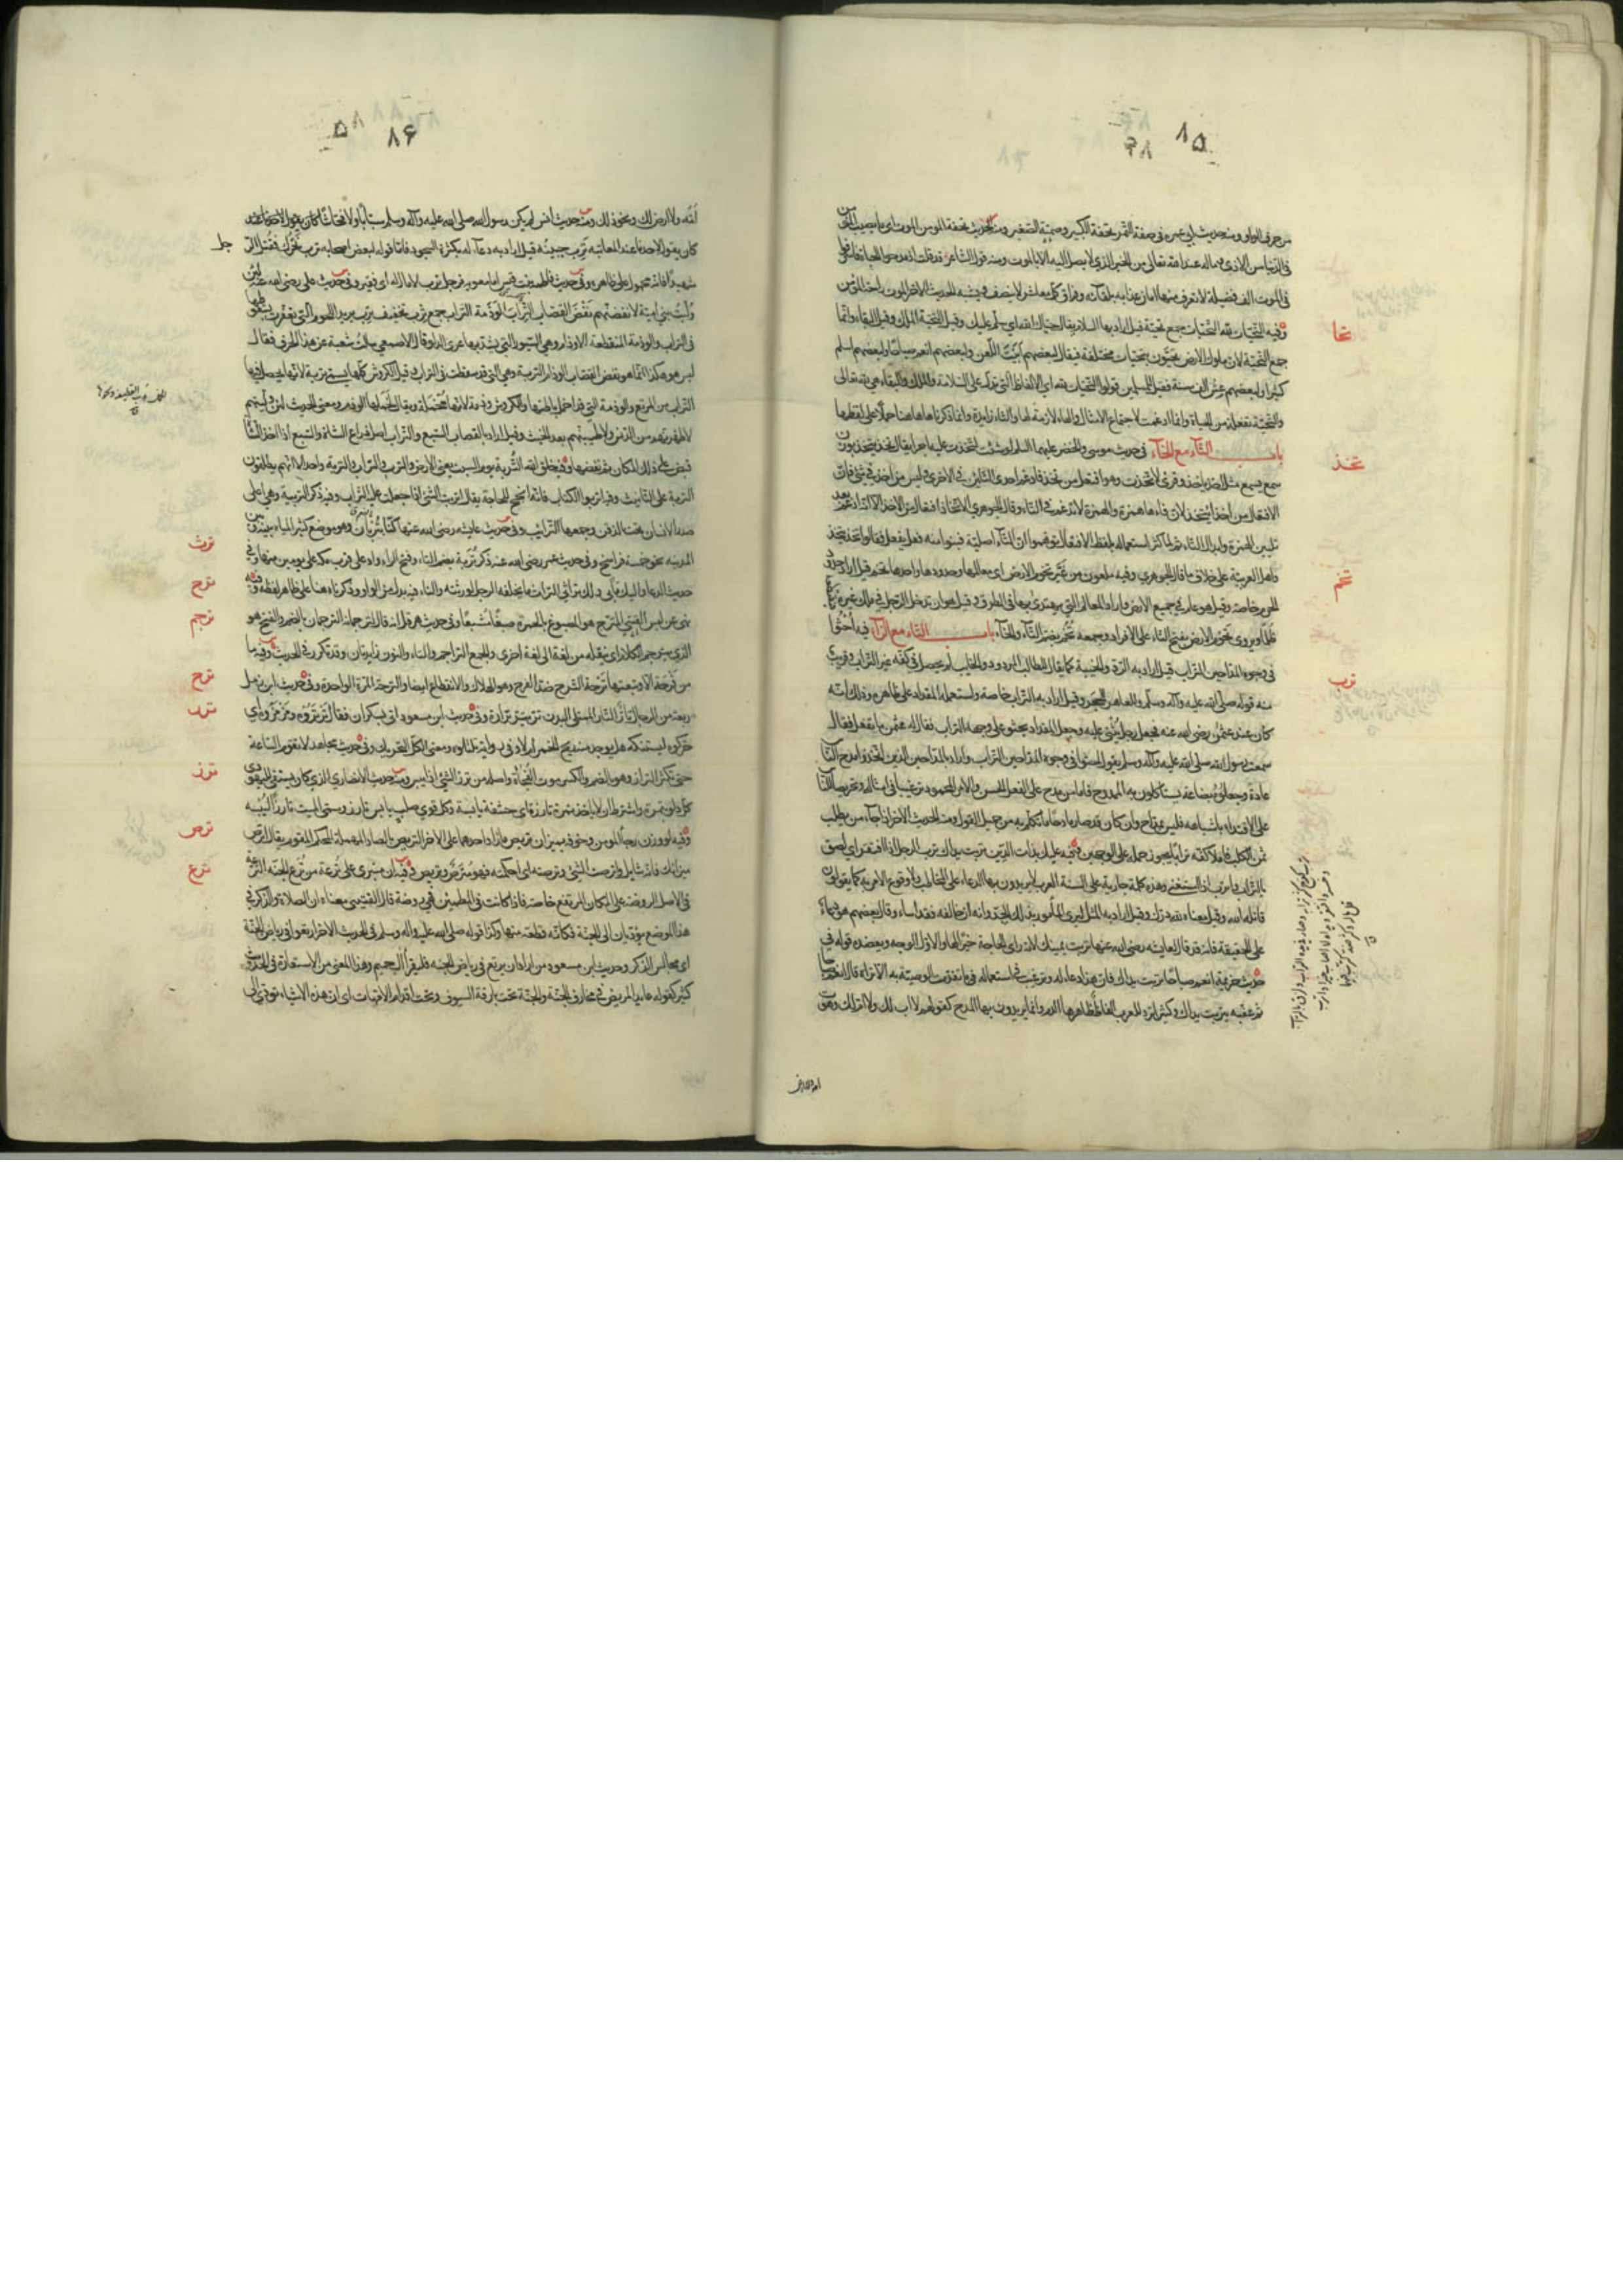 ٨٥
من حرف الواو ومنه حديث ابي عمرة في صفة التمر تحفة الكبير وصمتة الصغير ومنه الحديث تحفة المؤمن الموت اي ما يصيب المؤمن
في الدنيا من الاذى وماله عند الله تعالى من الخير الذي لا يصل اليه الا بالموت ومنه قول الشاعر قد قلت اذ مدحوا الحياة فاسرفوا
في الموت الف فضيلة لا تعرف منها امان عذابه بلقائه وفراق كل معاشر لا ينصف ويشبه الحديث الاخر الموت راحة المؤمن
وفيه التحيات لله التحيات جمع تحية قيل اراد بها السلام يقال حياك الله اي سلم عليك وقيل التحية الملك وقيل البقاء وانما
تحا
جمع التحية لان ملوك الارض يحيون بتحيات مختلفة فيقال لبعضهم ابيت اللعن ولبعضهم انعم صباحا ولبعضهم اسلم
كثيرا ولبعضهم عش الف سنة فقيل للمسلمين قولوا التحيات لله اي الالفاظ التي تدل على السلامة والملك والبقاء هي لله تعالى
والتحية تفعلة من الحياة وانما ادغمت لاجتماع الامثال والهاء لازمة لها والتاء زايدة وانما ذكرناها هاهنا حملا على لفظها
باب التاء مع الخاء في حديث موسى والخضر عليهما السلام لو شئت لتخذت عليه اجرا يقال تخذ يتخذ بوزن
تخذ
سمع يسمع مثل اخذ ياخذ وقرئ لاتخذت وهو افتعل من تخذ فادغم احدى التائين في الاخرى وليس من اخذ في شئ فان
الافتعال من اخذ ايتخذ لان فاءها همزة والهمزة لا تدغم في التاء وقال الجوهري الاتخاذ افتعال من الاخذ الا انه ادغم بعد
تليين الهمزة وابدال التاء ثم لما كثر استعماله بلفظ الافتعال توهموا ان التاء اصلية فبنوا منه فعل يفعل فقالوا تخذ يتخذ
واهل العربية على خلاف ما قال الجوهري وفيه ملعون من غير تخوم الارض اي معالمها وحدودها واحدها تخم قيل اراد حدود
تخم
الحرم خاصة وقيل هو عام في جميع الارض واراد المعالم التي يهتدى بها في الطرق وقيل هو ان يدخل الرجل في ملك غيره
ظلما ويروى تخوم الارض بفتح التاء على الافراد وجمعه تخم بضم التاء والخاء باب التاء مع الراء فيه احثوا
في وجوه المداحين التراب قيل اراد به الرد والخيبة كما يقال للطالب المردود والخايب لم يحصل في كفه غير التراب وقريب
ترب
منه قوله صلى الله عليه وآله وسلم وللعاهر الحجر وقيل اراد به التراب خاصة واستعمله المقداد على ظاهره وذلك انه
كان عند عثمن رضي الله عنه فجعل رجل يثني عليه وجعل المقداد يحثو على وجهه التراب فقال له عثمن ما تفعل فقال
سمعت رسول الله صلى الله عليه وآله وسلم يقول احثوا في وجوه المداحين التراب واراد بالمداحين الذين اتخذوا مدح الناس
عادة وجعلوه بضاعة يستأكلون به الممدوح فاما من مدح على الفعل الحسن والامر المحمود ترغيبا في امثاله وتحريضا للناس
على الاقتداء به في اشباهه فليس بمداح وان كان قد صار مادحا بما تكلم به من جميل القول ومنه الحديث الاخر اذا جاء من يطلب
ثمن الكلب فاملأ كفه ترابا يجوز حمله على الوجهين وفيه عليك بذات الدين تربت يداك ترب الرجل اذا افتقر اي لصق
بالتراب واترب اذا استغنى وهذه كلمة جارية على السنة العرب لا يريدون بها الدعاء على المخاطب ولا وقوع الامر به كما يقولون
قاتله الله وقيل معناه لله درك وقيل اراد به المثل ليرى المأمور بذلك الجد وانه ان خالفه فقد اساء وقال بعضهم هو دعاء
على الحقيقة فانه قد قال لعايشه رضي الله عنها تربت يمينك لانه راى الحاجة خيرا لها والاول الوجه ويعضده قوله في
حديث خزيمة انعم صباحا تربت يداك فان هذا دعاء له وترغيب في استعماله ما تقدمت الوصية به الا تراه قال انعم صباحا
ثم عقبه بتربت يداك وكثيرا ترد للعرب الفاظ ظاهرها الذم وانما يريدون بها المدح كقولهم لا اب لك ولا ام لك وهوت
٨۶
امه ولا ارض لك ونحو ذلك ومنه حديث انس لم يكن رسول الله صلى الله عليه وآله وسلم سبابا ولا فحاشا كان يقول لاحدنا عند
كان يقول لاحدنا عند المعاتبة ترب جبينه قيل اراد به دعاء له بكثرة السجود فاما قوله لبعض اصحابه ترب نحرك فقتل الرجل
شهيدا فانه محمول على ظاهره وفي حديث فاطمة بنت قيس اما معوية فرجل ترب لا مال له اي فقير وفي حديث علي رضي الله عنه لئن
وليت بني امية لانفضنهم نفض القصاب التراب الوذمة التراب جمع ترب تخفيف ترب يريد اللحوم التي تعفرت بسقوطها
في التراب والوذمة المنقطعة الاوذام وهي السيور التي يشد بها عرى الدلو قال الاصمعي سالت شعبة عن هذا الحرف فقال
ليس هو هكذا انما هو نفض القصاب الوذام التربة وهي التي قد سقطت في التراب وقيل الكروش كلها تسمى تربة لانها يحصل فيها
التراب من المرتع والوذمة التي اخمل باطنها والكروش وذمة لانها مخملة ويقال لخملها الوذم ومعنى الحديث لئن وليتهم
لاطهرنهم من الدنس ولاطيبنهم بعد الخبث وقيل اراد بالقصاب السبع والتراب اصل ذراع الشاة والسبع اذا اخذ الشاة
قبض على ذلك المكان ثم نفضها وفيه خلق الله التربة يوم السبت يعني الارض والترب والتراب والتربة واحد الا انهم يطلقون
التربة على التانيث وفيه اتربوا الكتاب فانه انجح للحاجة يقال اتربت الشئ اذا جعلت عليه التراب وفيه ذكر التريبة وهي اعلى
صدر الانسان تحت الذقن وجمعها الترايب وفي حديث عايشه رضي الله عنها كنا بتربان وهو موضع كثير المياه بينه وبين
المدينه نحو خمسة فراسخ وفي حديث عمر رضي الله عنه ذكر تربة بضم التاء وفتح الراء واد على قرب مكة على يومين منها وفي
حديث الدعاء واليك مآبي ولك تراثي التراث ما يخلفه الرجل لورثته والتاء فيه بدل من الواو وذكرناه هنا على ظاهر لفظه وفيه
ترث
ترح
نهى عن لبس القسي المترج هو المصبوغ بالحمرة صبغا مشبعا وفي حديث هرقل انه قال لترجمانه الترجمان بالضم والفتح هو
ترجم
الذي يترجم الكلام اي ينقله من لغة الى لغة اخرى والجمع التراجم والتاء والنون زايدتان وقد تكرر في الحديث وفيه ما
من فرحة الا وتبعتها ترحة الترح ضد الفرح وهو الهلاك والانقطاع ايضا والترحة المرة الواحدة وفي حديث ابن زمل
ترح
ربعة من الرجال تار التار الممتلئ البدن تر يتر ترارة وفي حديث ابن مسعود اتي بسكران فقال ترتروه ومزمزوه اي
ترر
حركوه ليستنكه هل يوجد منه ريح الخمر ام لا وفي رواية تلتلوه ومعنى الكل التحريك وفي حديث مجاهد لا تقوم الساعة
حتى يكثر التراز هو بالضم والكسر موت الفجأة واصله من ترز الشئ اذا يبس ومنه حديث الانصاري الذي كان يستقي ليهودي
ترز
كل دلو بتمرة واشترط ان لا ياخذ تمرة تارزة اي حشفة يابسة وكل قوي صلب يابس تارز وسمي الميت تارزا ليبسه
وفيه لو وزن رجاء المؤمن وخوفه بميزان تريص ما زاد احدهما على الاخر التريص بالصاد المهملة المحكم المقوم يقال اترص
ترص
ميزانك فانه شايل واترصت الشئ وترصته اي احكمته فهو مترص وتريص وفيه ان منبري على ترعة من ترع الجنة الترعة
ترع
في الاصل الروضة على المكان المرتفع خاصة فاذا كانت في المطمئن فهي روضة قال القتيبي معناه ان الصلاة والذكر في
هذا الموضع يؤديان الى الجنة فكانه قطعة منها وكذا قوله صلى الله عليه وآله وسلم في الحديث الاخر ارتعوا في رياض الجنة
اي مجالس الذكر وحديث ابن مسعود من اراد ان يرتع في رياض الجنه فليقرأ ال حميم وهذا المعنى من الاستعارة في الحديث
كثير كقوله عايد المريض في مخارف الجنة والجنة تحت بارقة السيوف وتحت اقدام الامهات اي ان هذه الاشياء تؤدي الى